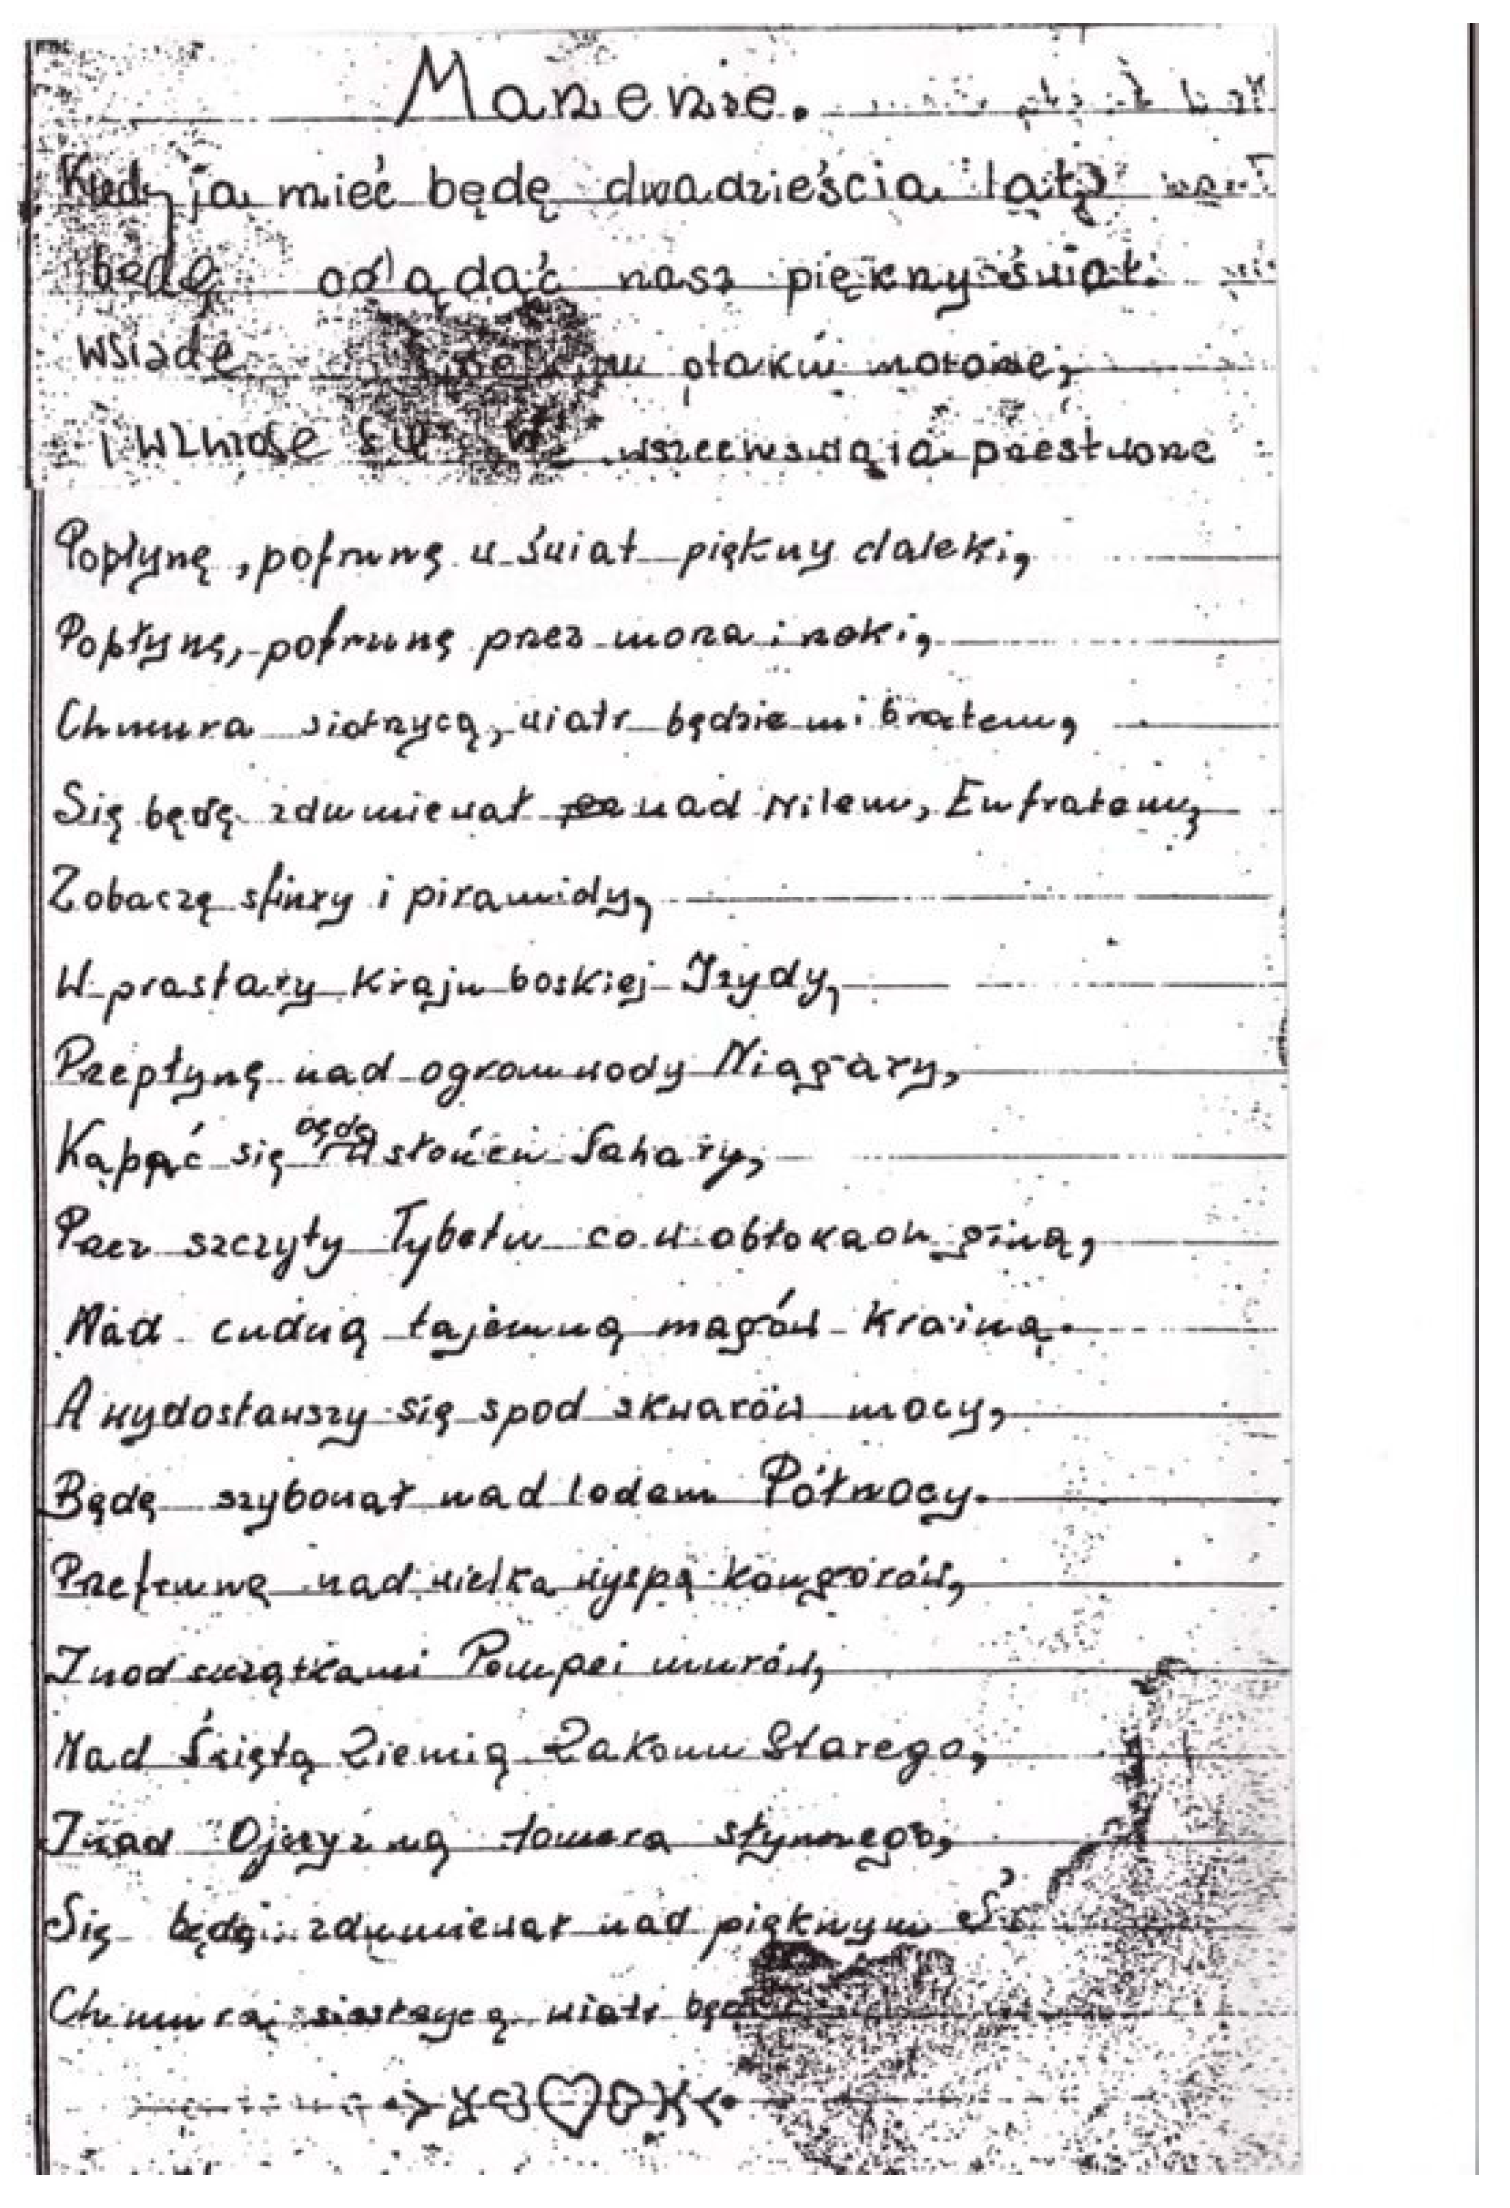 Marzenie.
Kiedy ja mieć będę dwadzieścia lat,
będę oglądać nasz piękny świat.
Wsiądę ptaków motorze,
i wzniosę się w wszechświata przestworze
Popłynę, pofrunę w świat piękny daleki,
Popłynę, pofrunę przez morza i rzeki,
Chmura siotrzycą, wiatr będzie mi bratem,
Się będę zdumiewał nad Nilem, Eufratem,
Zobaczę sfinxy i piramidy,
W prastary kraju boskiej Izydy,
Przepłynę nad ogrom wody Niagary,
Kąpać się będę w słońcu Sahary,
Przez szczyty Tybetu co w obłokach giną,
Nad cudną tajemną magów krainą.
A wydostawszy się spod skwarów mocy,
Będę szybował nad lodem Północy.
Przefrunę nad wielką wyspą kangórów,
I nad szczątkami Pompei murów,
Nad Świętą Ziemią Zakonu Starego,
I nad Ojczyzną Homera słynnego,
Się będę zdumiewał nad pięknym
Chmura siostrzycą wiatr